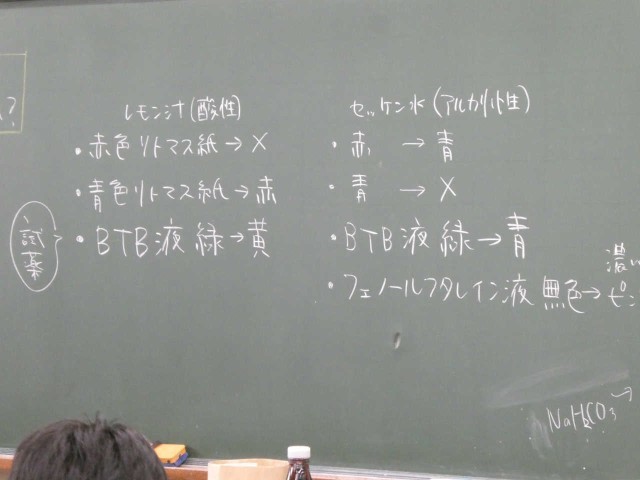 レモン汁(酸性)
・赤色リトマス紙→X
・青色リトマス紙→赤
・BTB液緑→黄
試薬
セッケン水(アルカリ性)
・赤 →青
・青 →X
・BTB液緑→青
濃い
・フェノールフタレイン液 無色→ピン
NaHCO3→
?